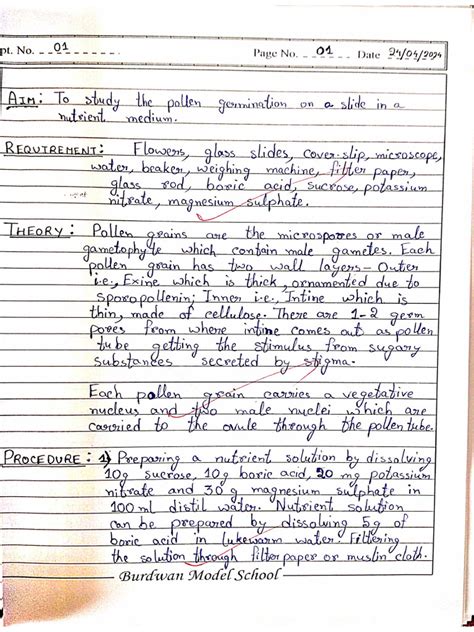 pt. No. 01 Page No. 01 Date 24/04/2024
AIM: To study the pollen germination on a slide in a
nutrient medium.
REQUIREMENT: Flowers, glass slides, cover-slip, microscope,
water, beaker, weighing machine, filter paper,
glass rod, boric acid, sucrose, potassium
nitrate, magnesium sulphate.
THEORY: Pollen grains are the microspores or male
gametophyte which contain male gametes. Each
pollen grain has two wall layers- Outer
i.e., Exine which is thick, ornamented due to
sporopollenin; Inner i.e., Intine which is
thin, made of cellulose. There are 1-2 germ
pores from where intine comes out as pollen
tube getting the stimulus from sugary
substances secreted by stigma.
Each pollen grain carries a vegetative
nucleus and two male nuclei which are
carried to the ovule through the pollen tube.
PROCEDURE: 1) Preparing a nutrient solution by dissolving
10g sucrose, 10g boric acid, 20 mg potassium
nitrate and 30 g magnesium sulphate in
100 ml distil water. Nutrient solution
can be prepared by dissolving 5g of
boric acid in lukewarm water. Filtering
the solution through filter paper or muslin cloth.
Burdwan Model School